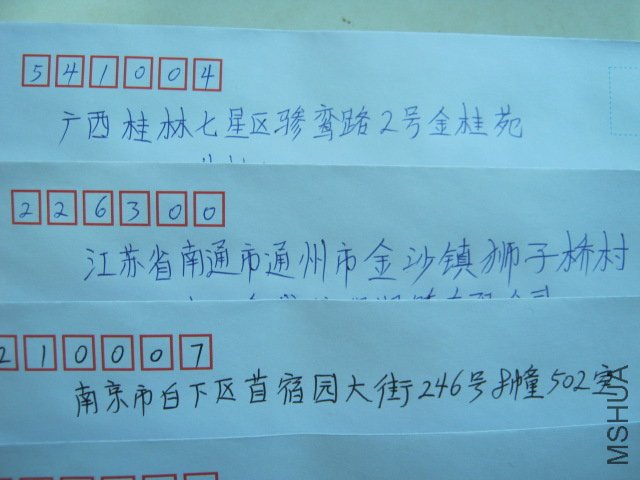 541004
广西桂林七星区骖鸾路2号金桂苑
226300
江苏省南通市通州市金沙镇狮子桥村
210007
南京市白下区苜宿园大街246号8幢502室
MSHUA